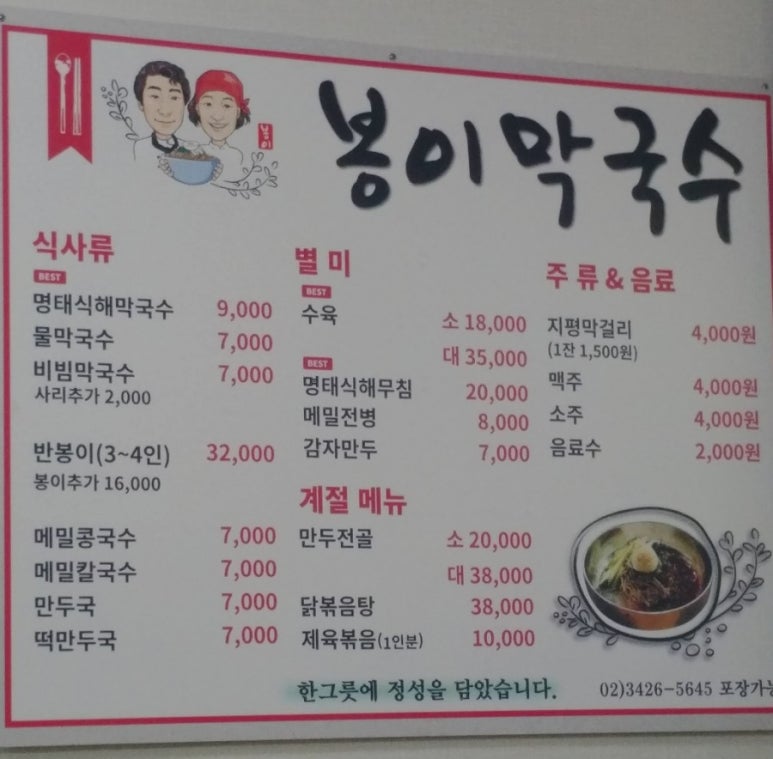 봉이
봉이막국수
식사류
BEST
명태식해막국수 9,000
물막국수 7,000
비빔막국수 7,000
사리추가 2,000
반봉이(3~4인) 32,000
봉이추가 16,000
메밀콩국수 7,000
메밀칼국수 7,000
만두국 7,000
떡만두국 7,000
별 미
BEST
수육 소 18,000
대 35,000
BEST
명태식해무침 20,000
메밀전병 8,000
감자만두 7,000
계절 메뉴
만두전골 소 20,000
대 38,000
닭볶음탕 38,000
제육볶음(1인분) 10,000
주 류 & 음료
지평막걸리 4,000원
(1잔 1,500원)
맥주 4,000원
소주 4,000원
음료수 2,000원
한그릇에 정성을 담았습니다.
02)3426-5645 포장가능